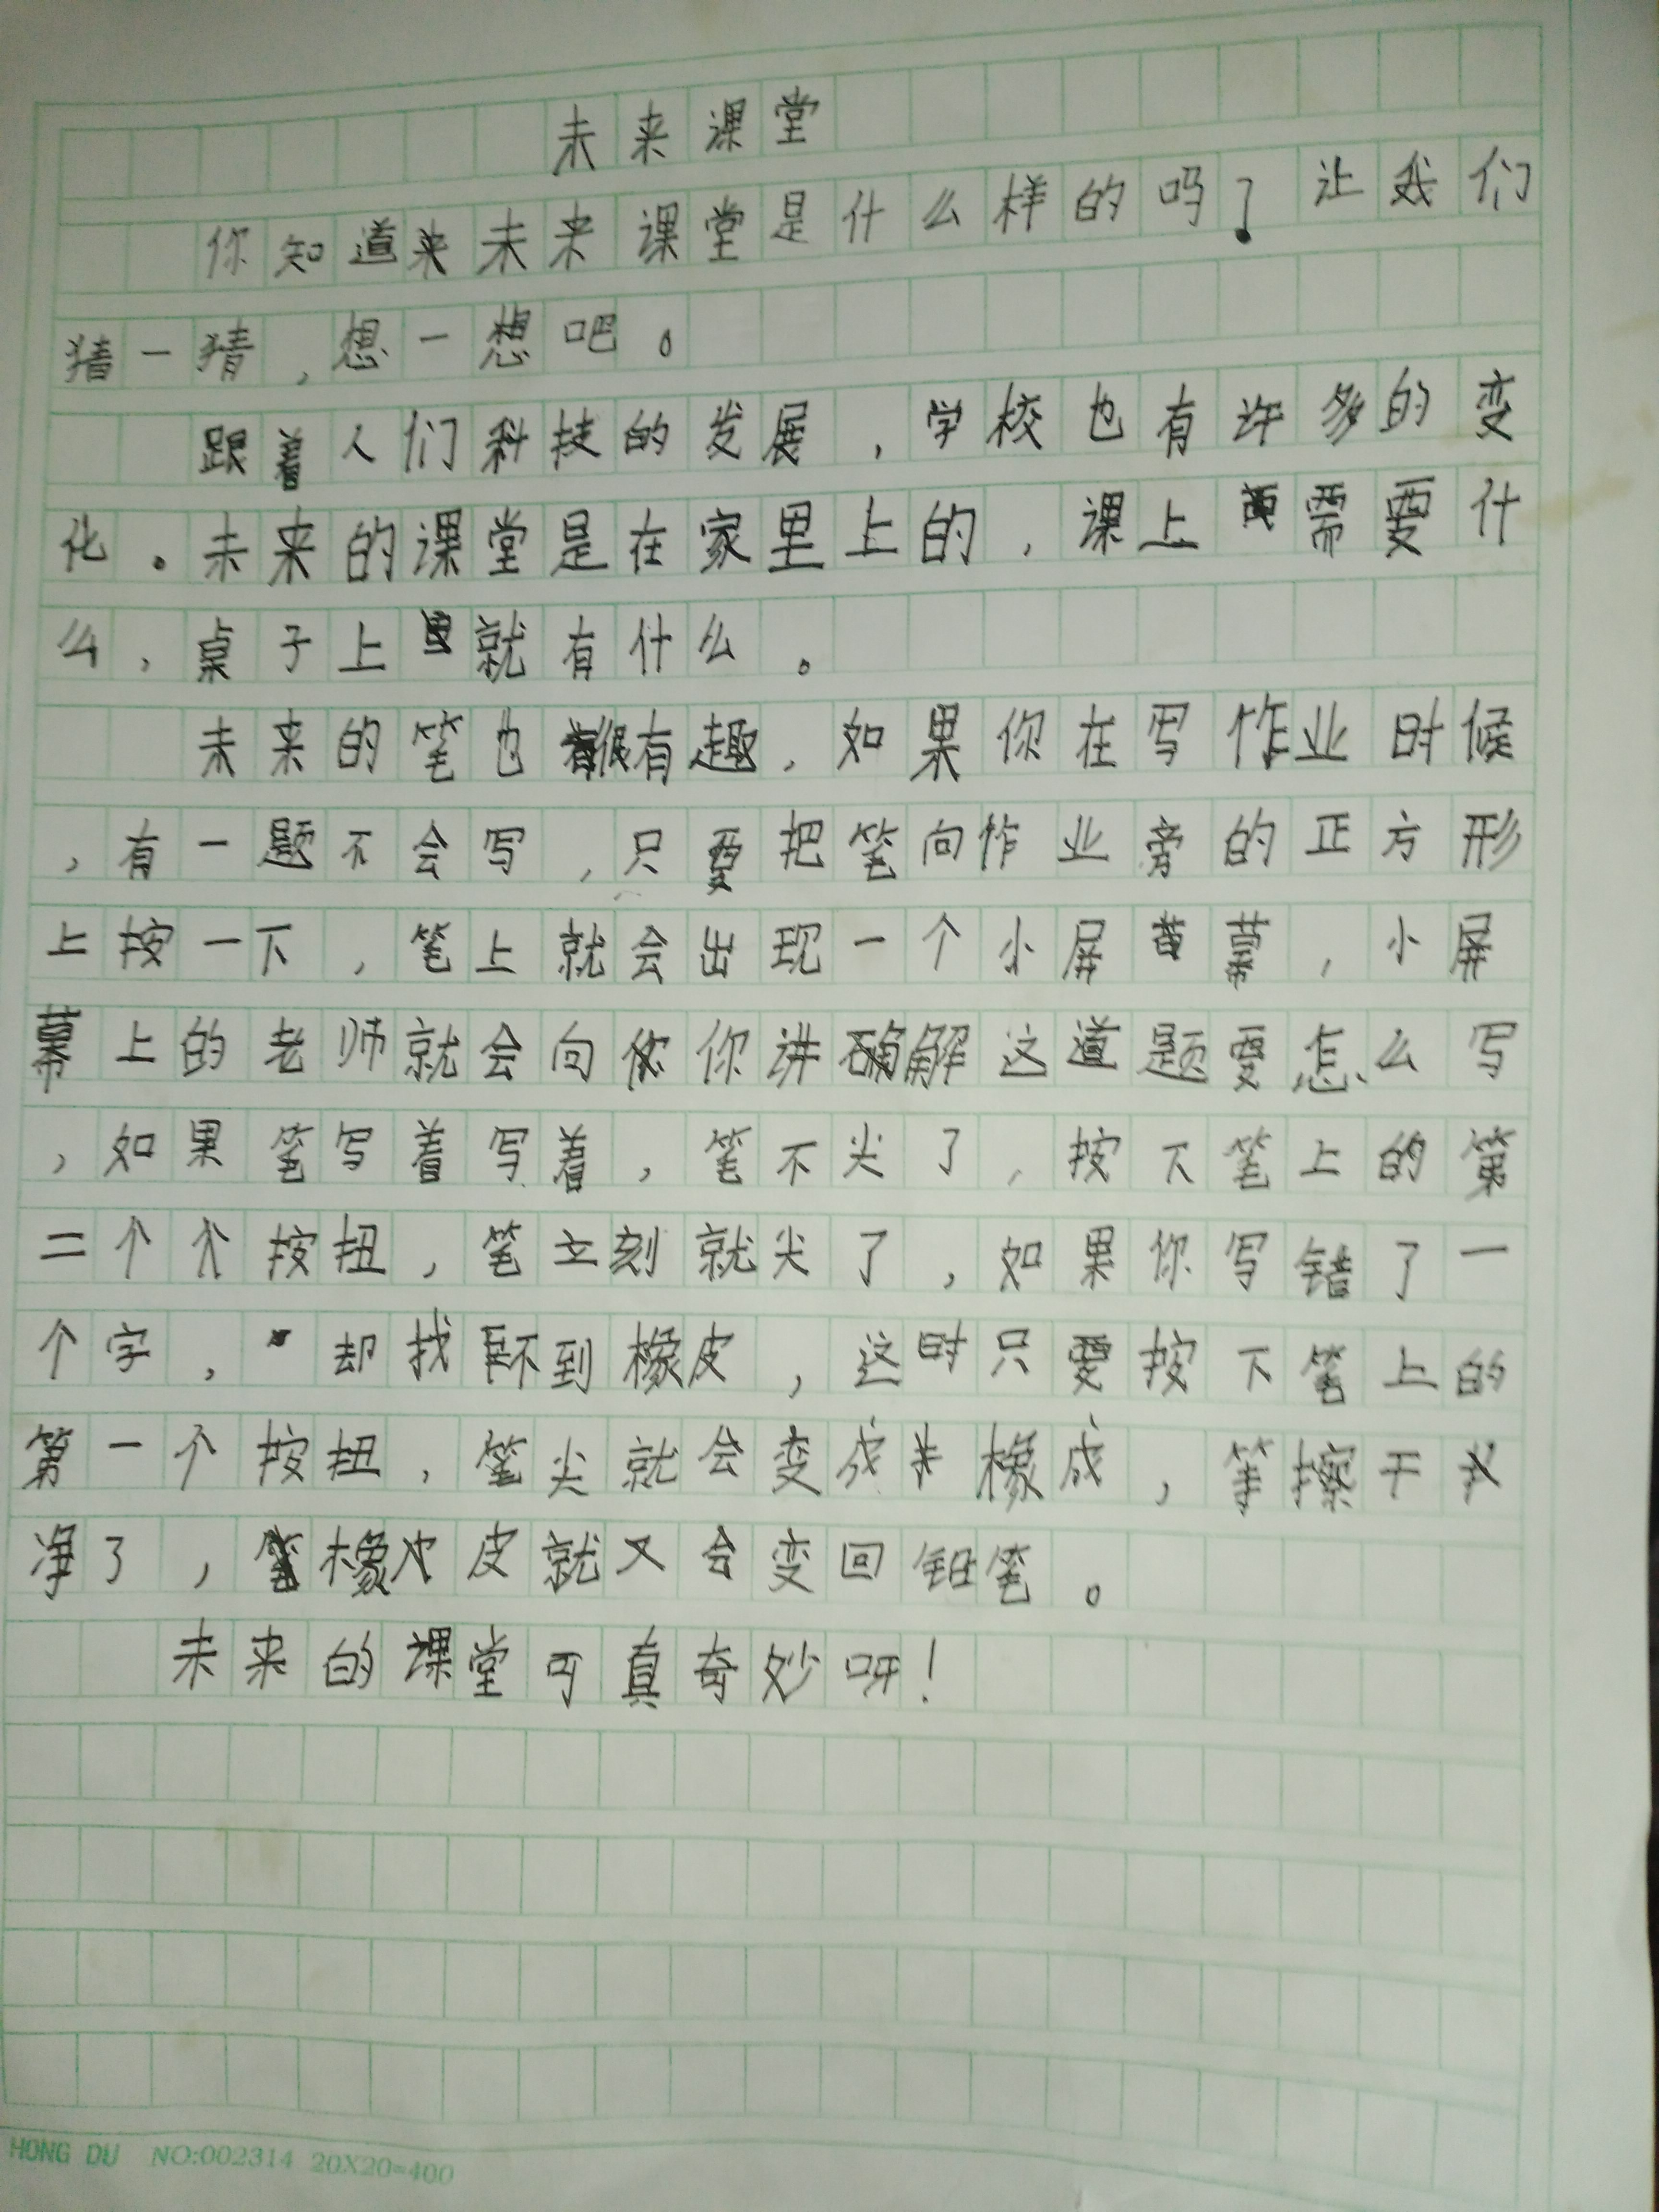 未来课堂
你知道未来课堂是什么样的吗？让我们
猜一猜，想一想吧。
跟着人们科技的发展，学校也有许多的变
化。未来的课堂是在家里上的，课上需要什
么，桌子上就有什么。
未来的笔也很有趣，如果你在写作业时候
，有一题不会写，只要把笔向作业旁的正方形
上按一下，笔上就会出现一个小屏幕，小屏
幕上的老师就会向你讲解这道题要怎么写
，如果笔写着写着，笔不尖了，按下笔上的第
二个按扭，笔立刻就尖了，如果你写错了一
个字，却找不到橡皮，这时只要按下笔上的
第一个按扭，笔尖就会变成橡成，等擦干
净了，橡皮就又会变回铅笔。
未来的课堂可真奇妙呀！
HONG DU NO:002314 20X20=400